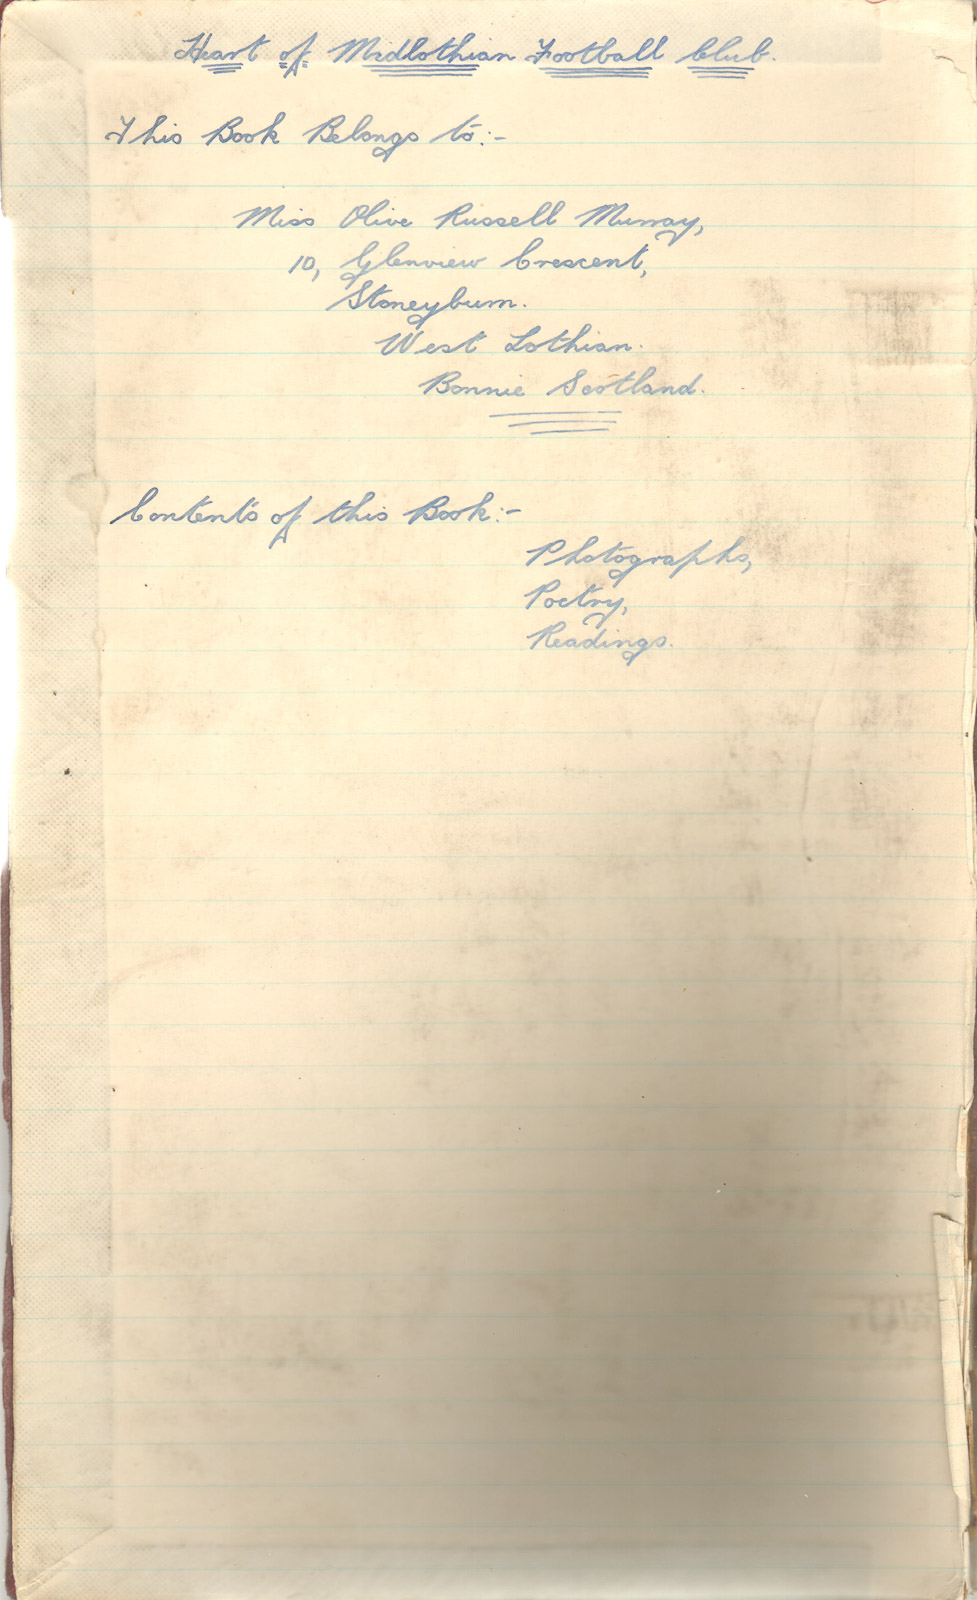 Heart of Midlothian Football Club.
This Book Belongs to:-
Miss Olive Russell Murray,
10, Glenview Crescent,
Stoneyburn.
West Lothian.
Bonnie Scotland.
Contents of this Book:-
Photographs,
Poetry,
Readings.